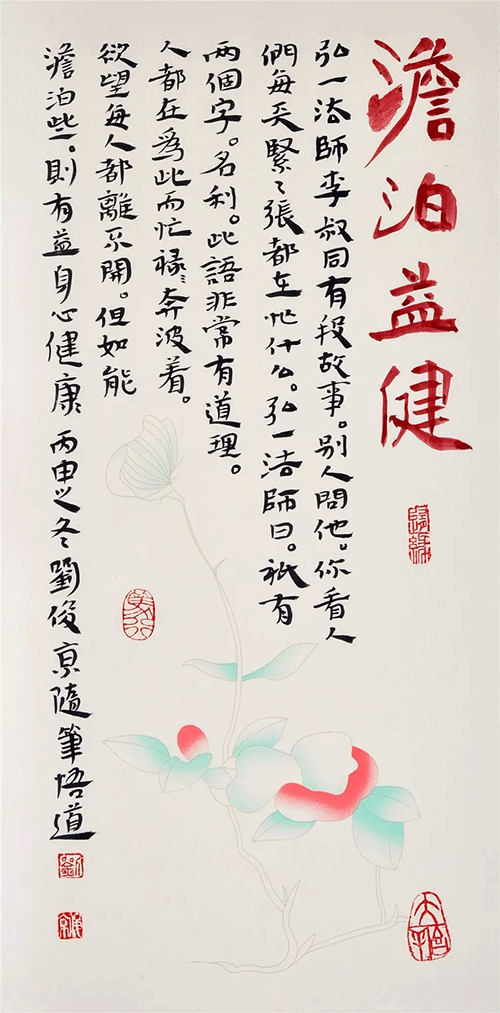 澹泊益健
弘一法師李叔同有段故事。别人問他。你看人
們每天緊々張都在忙什么。弘一法師曰。祇有
两個字。名利。此語非常有道理。
人都在爲此而忙碌、奔波着。
欲望每人都離不開。但如能
澹泊些。則有益身心健康 丙申之冬劉俊京隨筆悟道
隨緣